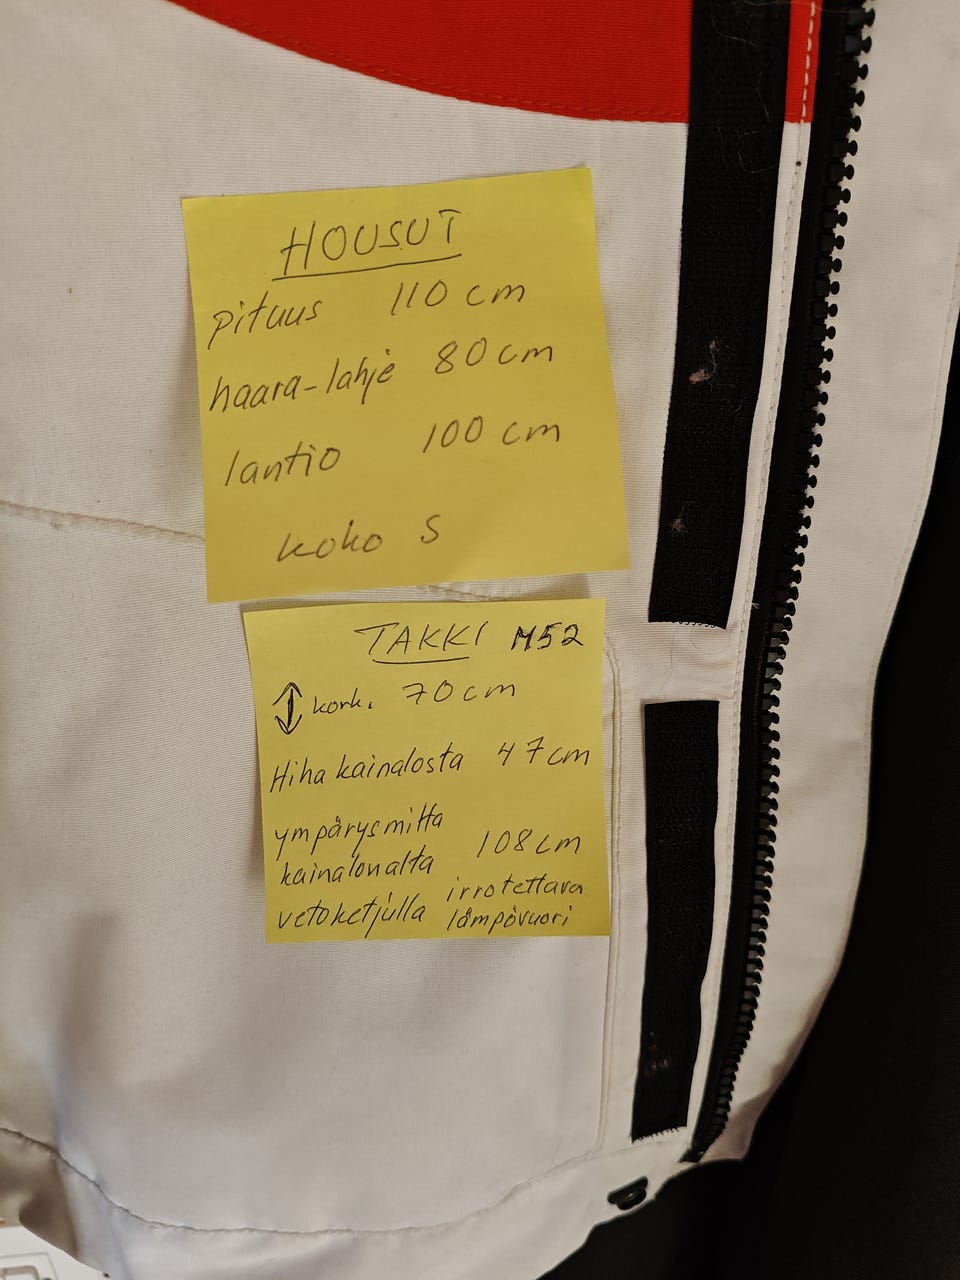 HOUSUT
pituus 110 cm
haara-lahje 80 cm
lantio 100 cm
koko S
TAKKI M52
kork. 70 cm
Hiha kainalosta 47 cm
ympärysmitta
kainalon alta 108 cm
vetoketjulla irrotettava
lämpövuori